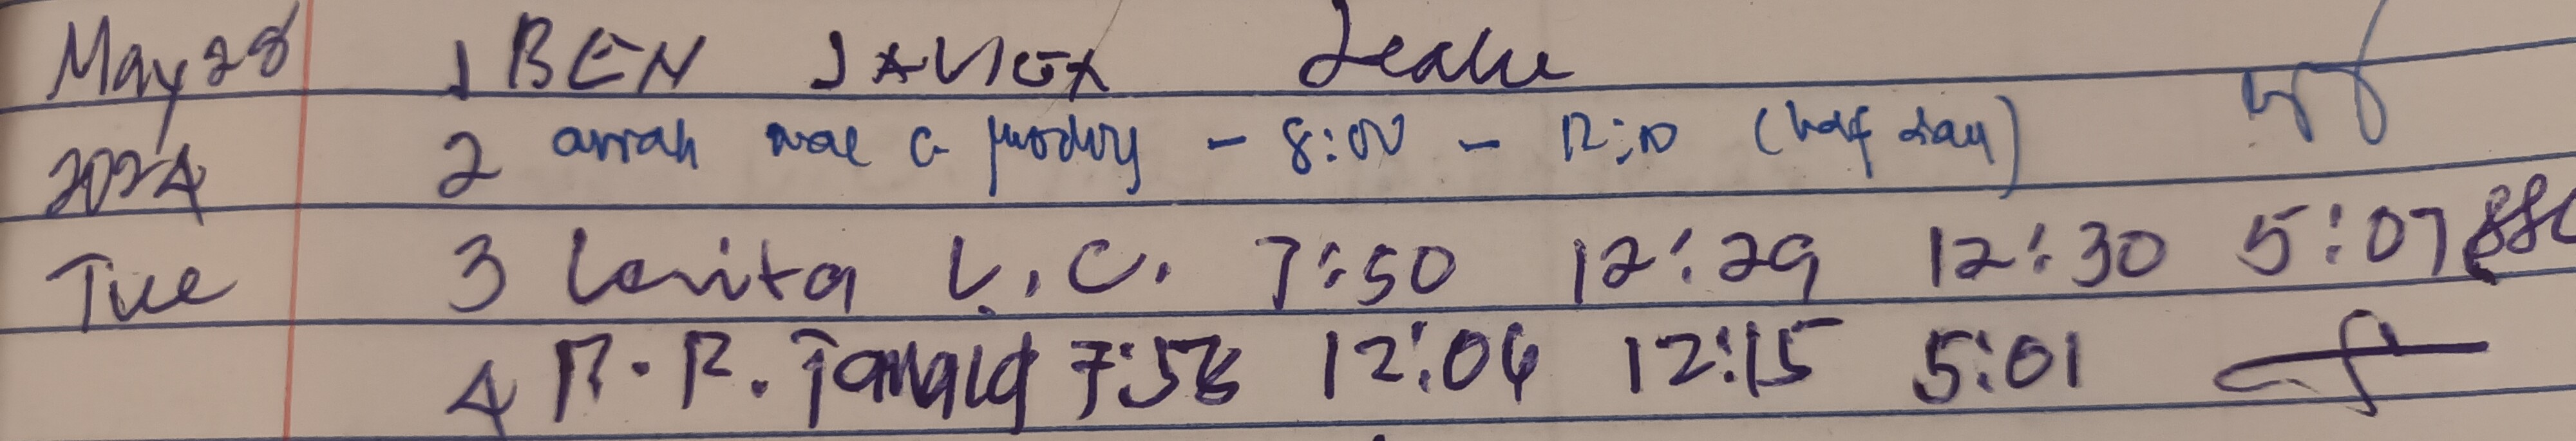 May 28 1 BEN JAVIER Leave
2024 2 mae c. - 8:00 - 12:00 (half day)
Tue 3 Lovita L.C. 7:50 12:29 12:30 5:07
4 R.R. 7:58 12:04 12:15 5:01